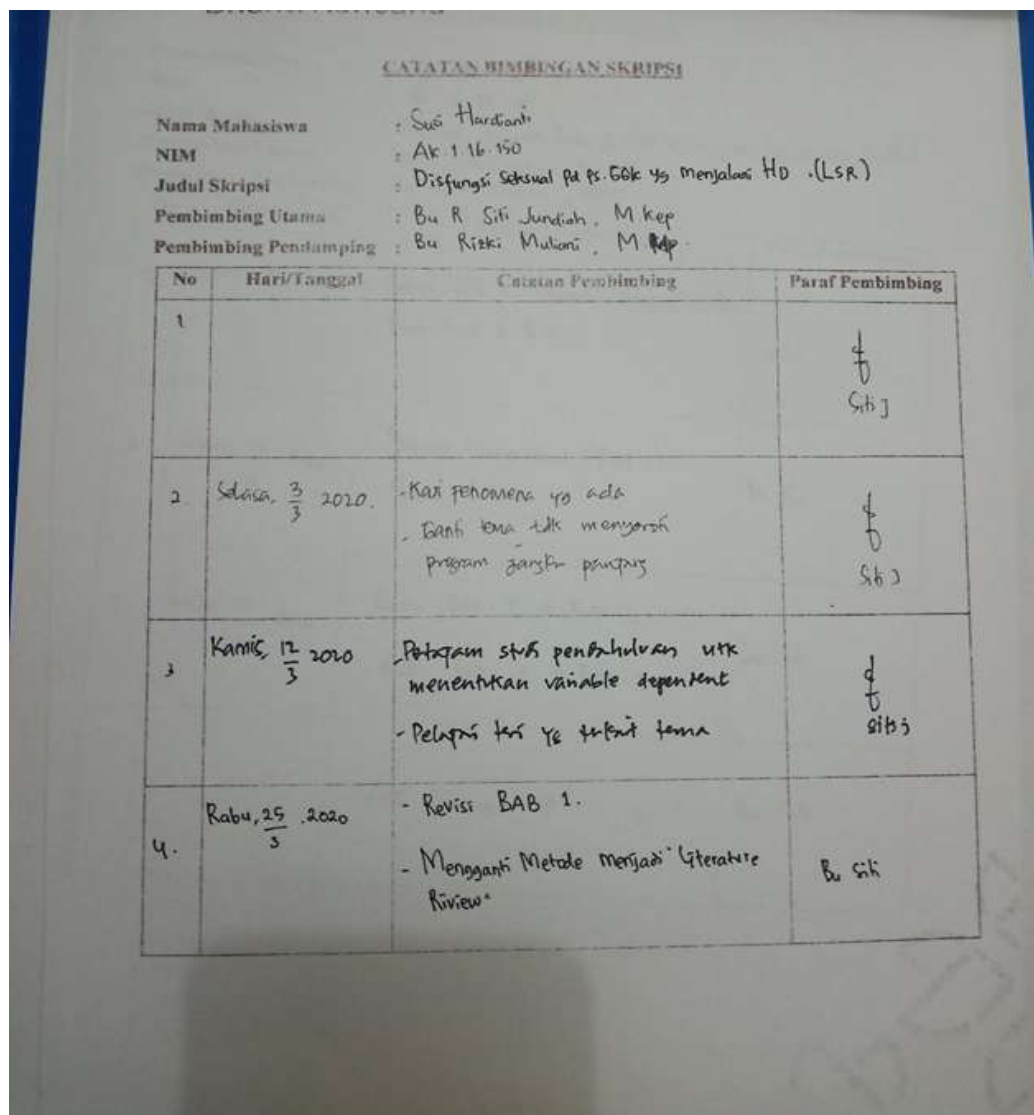 CATATAN BIMBINGAN SKRIPSI
Nama Mahasiswa : Susi Hardianti
NIM : AK.1.16.150
Judul Skripsi : Disfungsi Seksual Pd Ps. GGK yg menjalani HD .(LSR)
Pembimbing Utama : Bu R Siti Jundiah, M.Kep
Pembimbing Pendamping : Bu Rizki Muliani, M
No Hari/Tanggal Catatan Pembimbing Paraf Pembimbing
1
Siti J
2 Selasa, 3/3 2020. - Kaji fenomena yg ada
- Ganti tema tdk menyoroti
program jangka panjang
Siti J
3 Kamis, 12/3 2020 - studi pendahuluan utk
menentukan variable dependent
- Pelajari teori yg terkait tema
Siti J
4. Rabu, 25/3 .2020 - Revisi BAB 1.
- Mengganti Metode menjadi "Literature
Riview"
Bu Siti